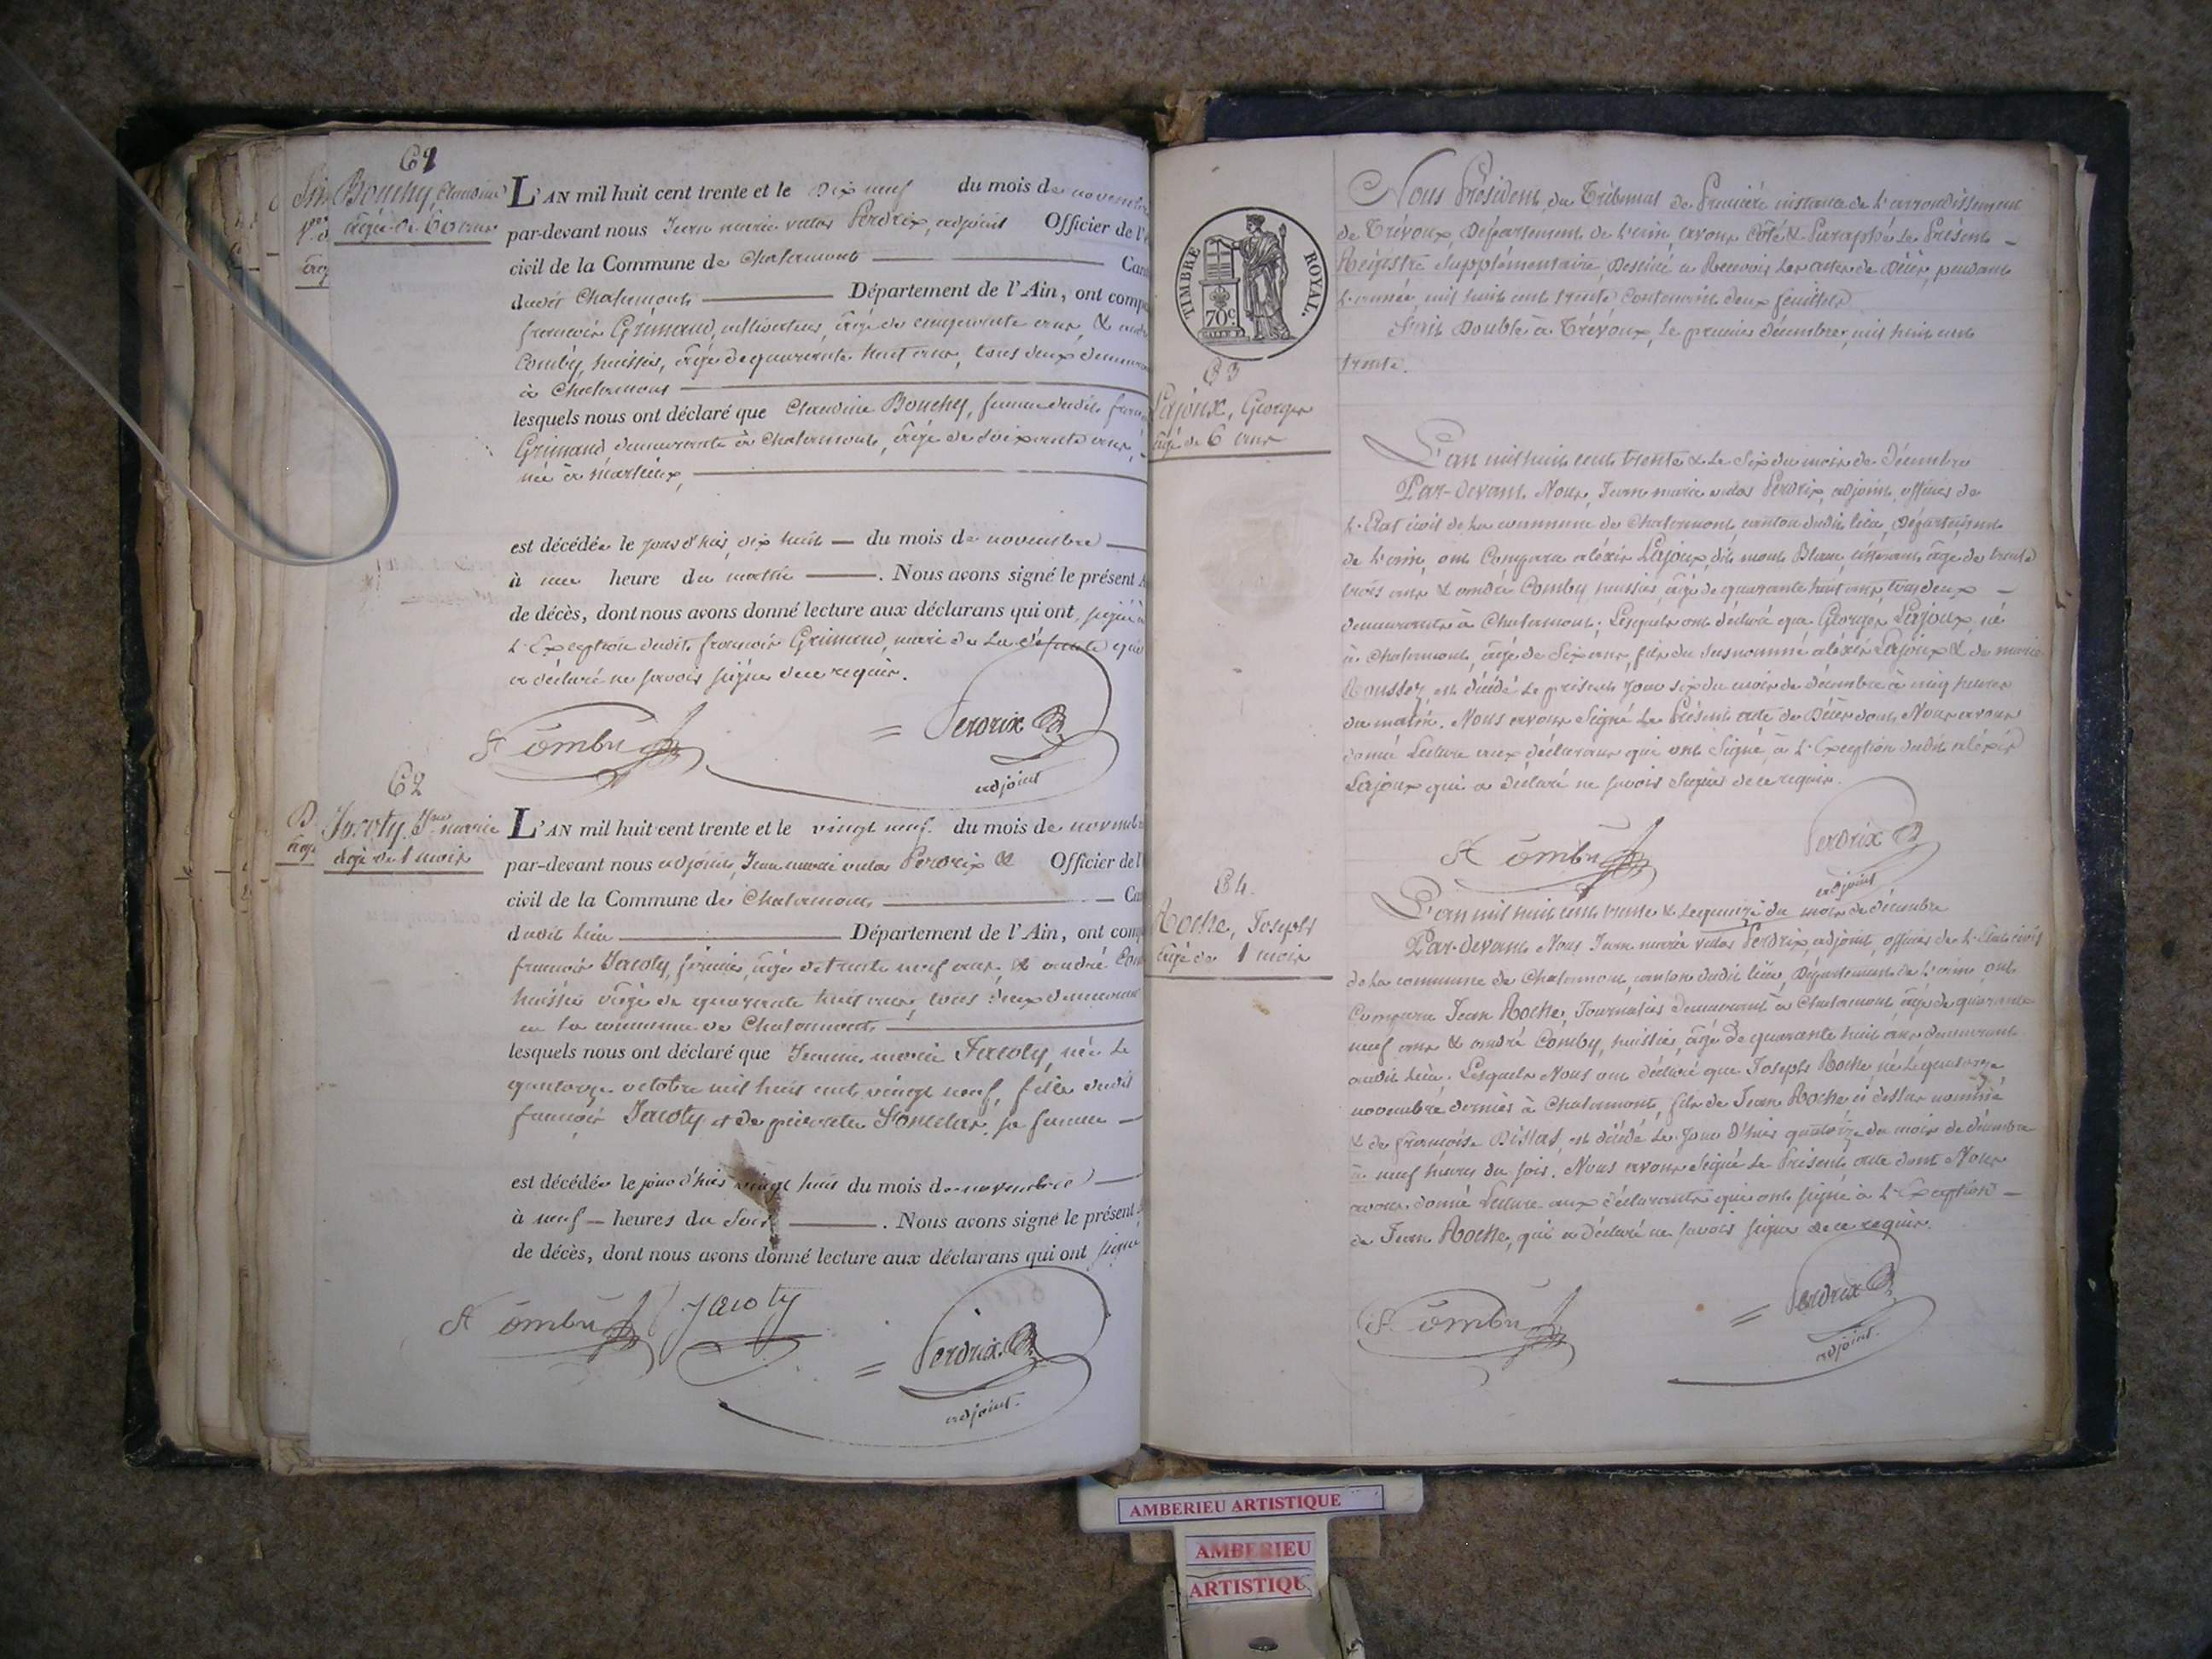 61
Bouchy, Claudine
âgée de 60 ans
L'AN mil huit cent trente et le Dix neuf du mois de novembre
par-devant nous Jean marie victor Perdrix, adjoint Officier de l'é
civil de la Commune de Chalamont Can
dudit Chalamont Département de l'Ain, ont comp
françois Grimaud, cultivateur, âgé de cinquante ans, & andr
Comby, huissier, âgé de quarante huit ans, tous deux demeura
à Chalamont
lesquels nous ont déclaré que Claudine Bouchy, femme dudit fran
Grimaud, demeurante à Chalamont, âgée de soixante ans,
née à marlieux,
est décédée le jour d'hier, dix huit du mois de novembre
à une heure du matin. Nous avons signé le présent A
de décès, dont nous avons donné lecture aux déclarans qui ont signé à
L'Exception dudit françois Grimaud, mari de la défunte qui
a déclaré ne savoir signer de ce requis.
A Comby Perdrix
adjoint
62
Jacoty, Jne marie
âgée de 1 mois
L'AN mil huit cent trente et le vingt neuf du mois de novembr
par-devant nous adjoint, Jean marie victor Perdrix & Officier de l'
civil de la Commune de Chalamont Ca
dudit lieu Département de l'Ain, ont comp
françois Jacoty, âgé de trente neuf ans, & andré Com
huissier âgé de quarante huit ans, tous deux demeurant
en la commune de Chalamont
lesquels nous ont déclaré que Jeanne marie Jacoty, née le
quatorze octobre mil huit cent vingt neuf, fille dudit
françois Jacoty et de pierrette sa femme
est décédée le jour d'hier vingt huit du mois de novembre
à neuf heures du Soir. Nous avons signé le présent A
de décès, dont nous avons donné lecture aux déclarans qui ont signé
A Comby Jacoty
Perdrix
adjoint.
Nous Président du Tribunal de Première instance de L'arrondissement
de Trévoux, Département de L'ain, avons Côté & Paraphé Le Présent
Régistre Supplémentaire Destiné à Recevoir Les actes de Décès, pendant
L'année mil huit cent trente Contenant deux feuillets
Fait Double à Trévoux, Le premier décembre, mil huit cent
trente.
TIMBRE ROYAL.
70c
63
Lajoux, Georges
âgé de 6 ans
L'an mil huit cent trente & Le Six du mois de Décembre
Par-devant Nous, Jean marie victor Perdrix, adjoint, officier de
L'Etat civil de La commune de Chalamont, canton dudit lieu, Département
de L'ain, ont Comparu aléxis Lajoux, dit mont Blanc, âgé de trente
trois ans & andré Comby huissier, âgé de quarante huit ans, tous deux
demeurants à Chalamont; Lesquels ont déclaré que Georges Lajoux, né
à Chalamont, âgé de Six ans, fils du susnommé aléxis Lajoux & de marie
Rousset, est décédé Le présent Jour six du mois de décembre à cinq heures
du matin. Nous avons Signé Le Présent acte de Décès dont Nous avons
donné Lecture aux déclarans qui ont Signé, à L'Exception dudit aléxis
Lajoux qui a déclaré ne savoir Signer de ce requis.
A Comby Perdrix
adjoint
64.
Roche, Joseph
âgé de 1 mois
L'an mil huit cent trente & Le quinze du mois de décembre
Par-devant Nous Jean marie victor Perdrix, adjoint, officier de L'Etat civil
de La commune de Chalamont, canton dudit lieu, Département de L'ain, ont
Comparu Jean Roche, Journalier demeurant à Chalamont âgé de quarante
neuf ans & andré Comby, huissier, âgé de quarante huit ans demeurant
audit lieu. Lesquels Nous ont déclaré que Joseph Roche né Le quatorze
novembre dernier à Chalamont, fils de Jean Roche ci dessus nommé
& de françoise est décédé Le Jour d'hier quatorze du mois de décembre
à neuf heures du soir. Nous avons Signé Le Présent acte dont Nous
avons donné Lecture aux déclarants qui ont signé à L'Exception
de Jean Roche, qui a Déclaré ne savoir signer de ce requis.
A Comby Perdrix
adjoint.
AMBERIEU ARTISTIQUE
AMBERIEU
ARTISTIQU